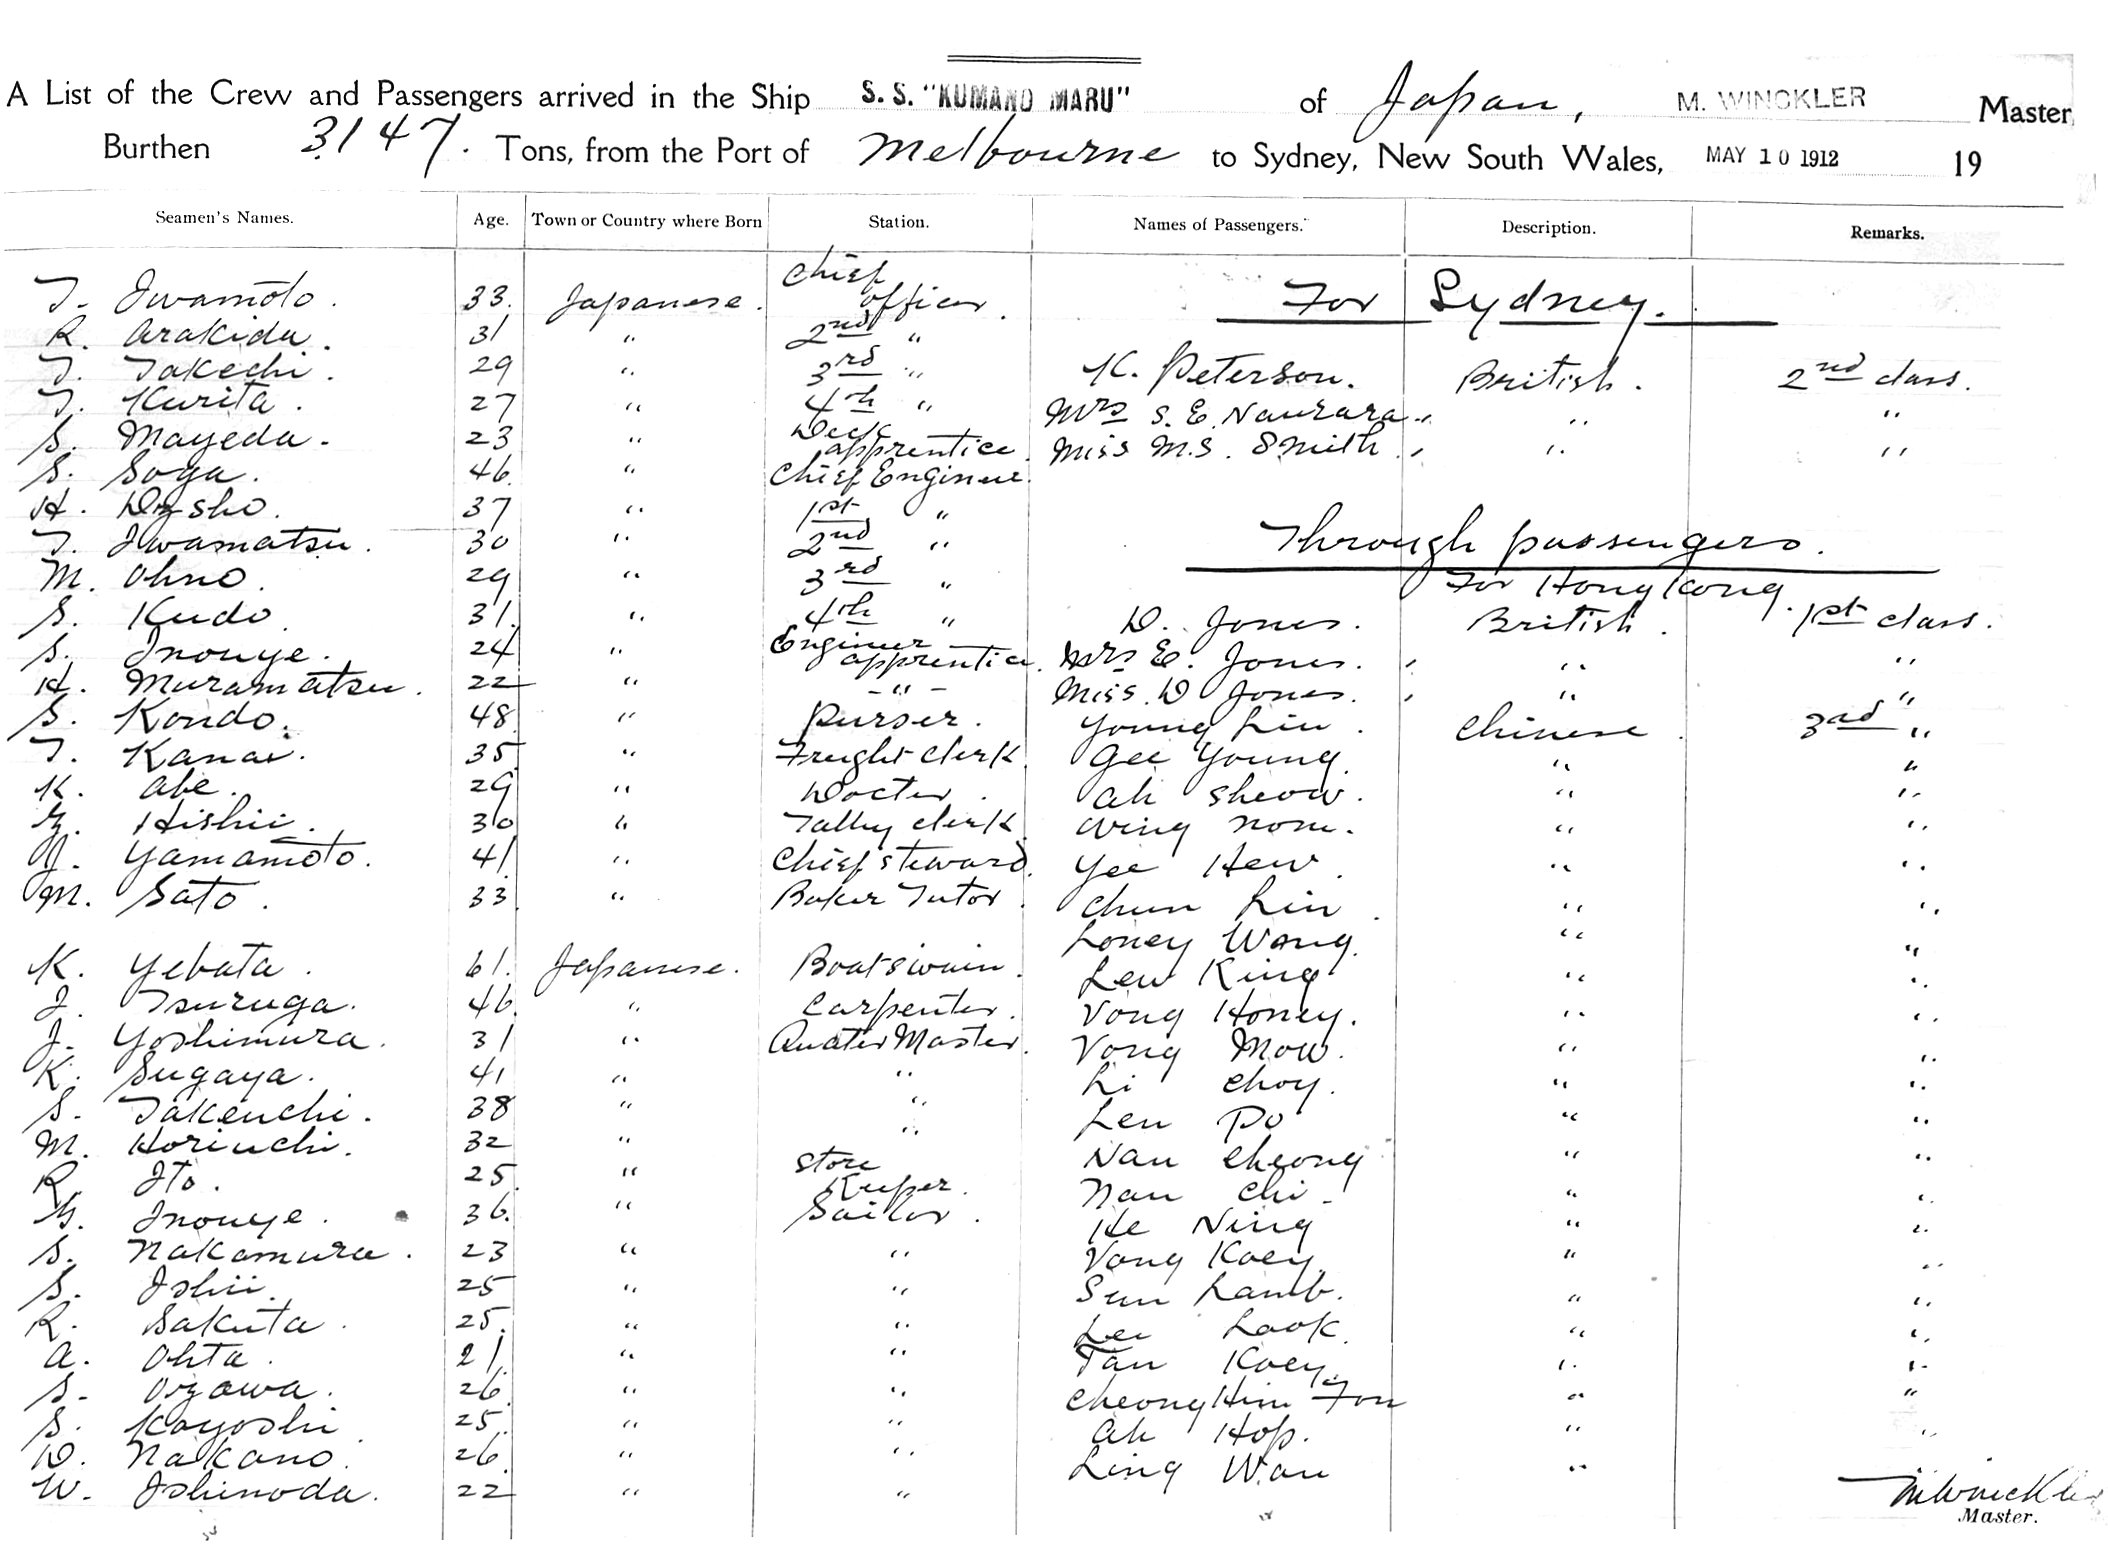 A List of the Crew and Passengers arrived in the Ship S. S. "KUMANO MARU" of Japan, M. WINCKLER Master
Burthen 3147. Tons, from the Port of Melbourne to Sydney, New South Wales, MAY 10 1912 19
Seamen's Names. Age. Town or Country where Born Station. Names of Passengers. Description. Remarks.
T. Iwamoto. 33. Japanese. Chief officer. For Sydney.
R. Arakida. 31 " 2nd "
T. Takechi. 29 " 3rd " K. Peterson. British. 2nd class.
T. Kurita. 27 " 4th " Mrs S. E. Naurara " "
S. Mayeda. 23 " Deck apprentice. Miss M.S. Smith. " "
S. Soga. 46. " Chief Engineer.
H. 37 " 1st "
T. Iwamatsu. 30 " 2nd " Through passengers.
M. Ohno. 29 " 3rd " For Hong Kong.
S. Kudo. 31. " 4th " D. Jones. British. 1st class.
S. Inouye. 24 " Engineer apprentice. Mrs E. Jones. " "
H. Muramatsu. 22 " - " - Miss. D Jones. " "
S. Kondo. 48. " Purser. Young Liu. Chinese. 3rd "
T. Kanai. 35 " Freight clerk. Gee Young. " "
K. Abe. 29 " Docter. Ah Sheow. " "
Hishii. 30 " Talley clerk. Wing Nom. " "
J. Yamamoto. 41 " Chief steward. Yee Hew. " "
M. Sato. 33 " Baker Tutor. Chun Lin. " "
Loney Wong. " "
K. Yebata. 61. Japanese. Boatswain. Lew King " "
J. Tsuruga. 46. " Carpenter. Vong Honey. " "
J. Yoshimura. 31 " Quater Master. Vong Mow. " "
K. Sugaya. 41 " " Li Choy. " "
S. Takeuchi. 38 " " Leu Po " "
M. Horiuchi. 32 " " Nau Cheong " "
R. Ito. 25. " Store Keeper. Nau Chi. " "
Inouye. 36. " Sailor. He Ning " "
S. Nakamura. 23 " " Vong Koey. " "
S. Ishii. 25 " " Sun Lamb. " "
R. Sakuta. 25. " " Lee Look. " "
A. Ohta. 21. " " Tau Koey. " "
S. Ozawa. 26. " " Cheong Him Fon " "
S. Koyoshi 25. " " Ah Hop. " "
D. Nakano. 26. " " Ling Wau "
W. Ishinoda. 22 " "
M Winckler
Master.